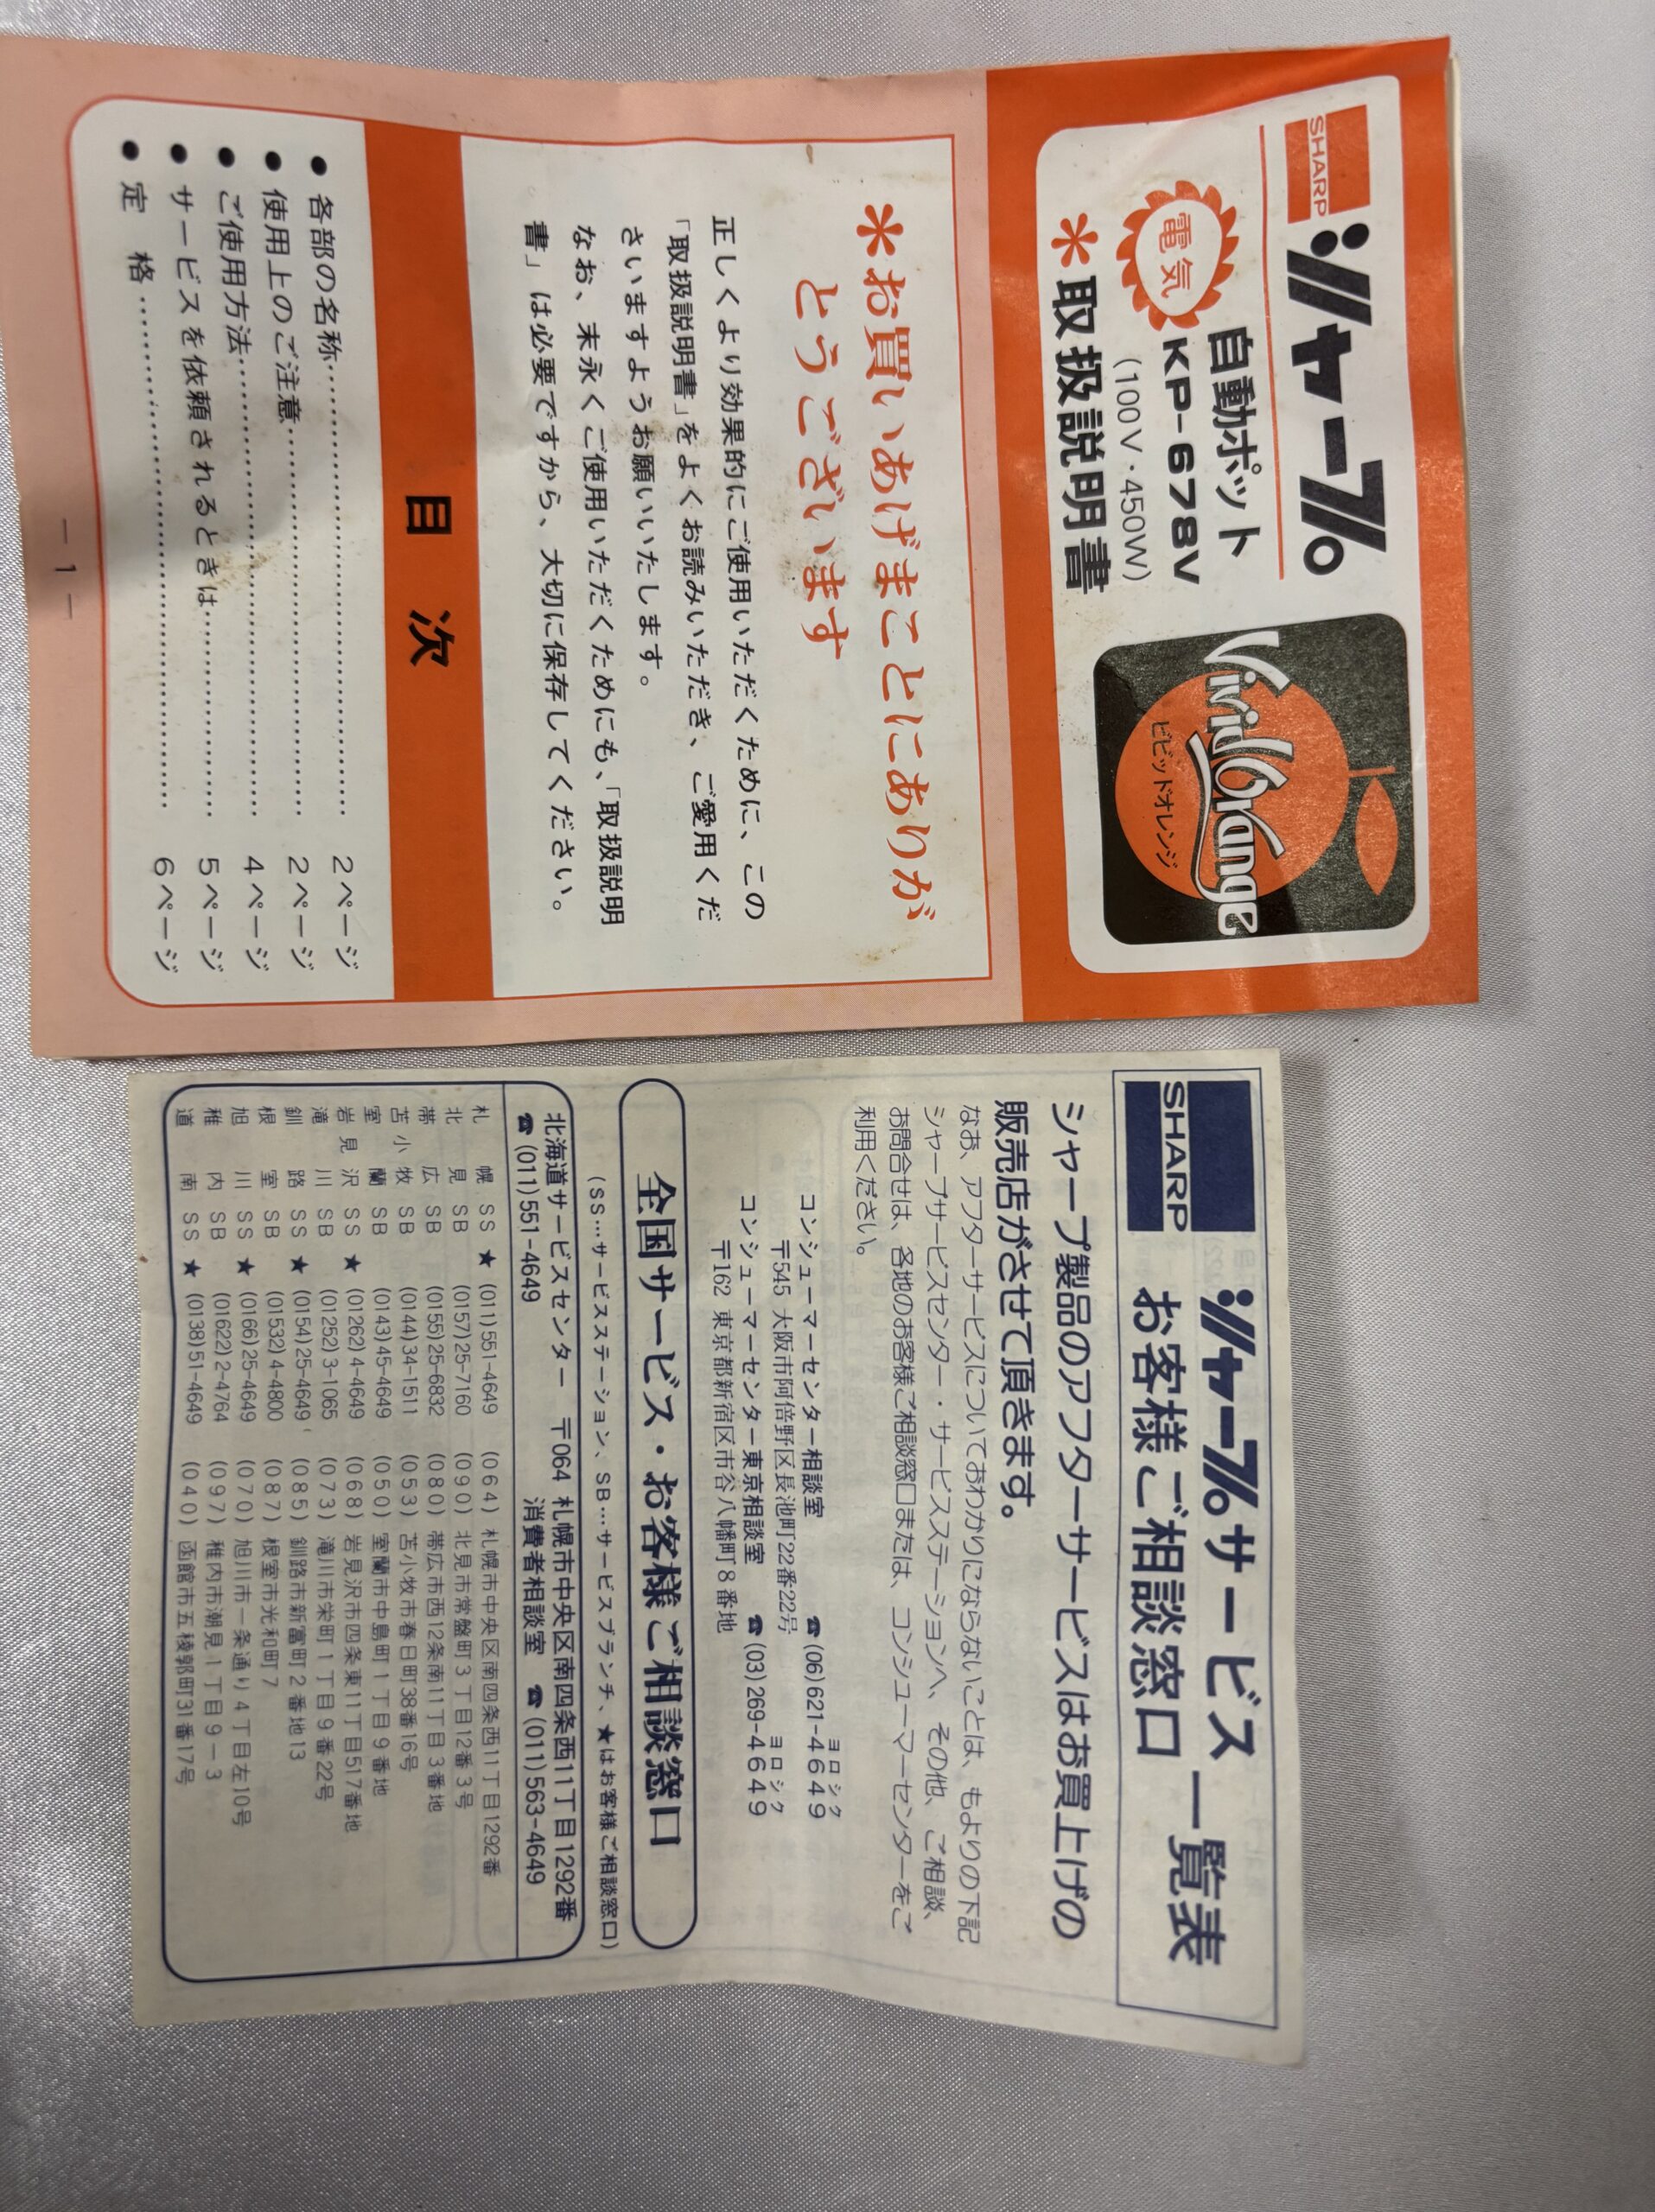 SHARP
シャープ
電気
自動ポット
KP-678V
(100V・450W)
＊取扱説明書
VividOrange
ビビッドオレンジ
＊お買いあげまことにありが
とうございます
正しくより効果的にご使用いただくために、この
「取扱説明書」をよくお読みいただき、ご愛用くだ
さいますようお願いいたします。
なお、末永くご使用いただくためにも、「取扱説明
書」は必要ですから、大切に保存してください。
目次
●各部の名称……………………………2ページ
●使用上のご注意………………………2ページ
●ご使用方法……………………………4ページ
●サービスを依頼されるときは………5ページ
●定　格…………………………………6ページ
－1－
SHARP
シャープサービス
お客様ご相談窓口
一覧表
シャープ製品のアフターサービスはお買上げの
販売店がさせて頂きます。
なお、アフターサービスについておわかりにならないことは、もよりの下記
シャープサービスセンター・サービスステーションへ、その他、ご相談、
お問合せは、各地のお客様ご相談窓口または、コンシューマーセンターをご
利用ください。
ヨロシク
コンシューマーセンター相談室　☎(06)621-4649
〒545 大阪市阿倍野区長池町22番22号
ヨロシク
コンシューマーセンター東京相談室　☎(03)269-4649
〒162 東京都新宿区市谷八幡町8番地
全国サービス・お客様ご相談窓口
(SS…サービスステーション、SB…サービスブランチ、★はお客様ご相談窓口)
北海道サービスセンター　〒064 札幌市中央区南四条西11丁目1292番
☎(011)551-4649　消費者相談室　☎(011)563-4649
札幌SS★(011)551-4649 (064) 札幌市中央区南四条西11丁目1292番
北見SB (0157)25-7160 (090) 北見市常盤町3丁目12番3号
帯広SB (0155)25-6832 (080) 帯広市西12条南11丁目3番地
苫小牧SB (0144)34-1511 (053) 苫小牧市春日町38番16号
室蘭SB (0143)45-4649 (050) 室蘭市中島町1丁目9番地
岩見沢SS★(01262)4-4649 (068) 岩見沢市四条東11丁目517番地
滝川SB (01252)3-1065 (073) 滝川市栄町1丁目9番22号
釧路SS★(0154)25-4649 (085) 釧路市新富町2番地13
根室SB (01532)4-4800 (087) 根室市光和町7
旭川SS★(0166)25-4649 (070) 旭川市一条通り4丁目左10号
稚内SB (01622)2-4764 (097) 稚内市潮見1丁目9－3
道南SS★(0138)51-4649 (040) 函館市五稜郭町31番17号